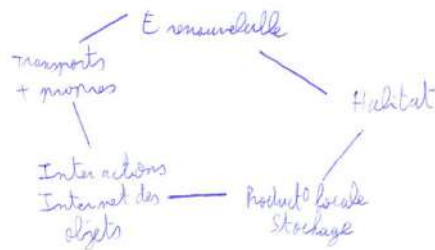 E renouvelable
Transports
+ propres
Habitat
Interactions
Internet des
objets
Product° locale
Stockage